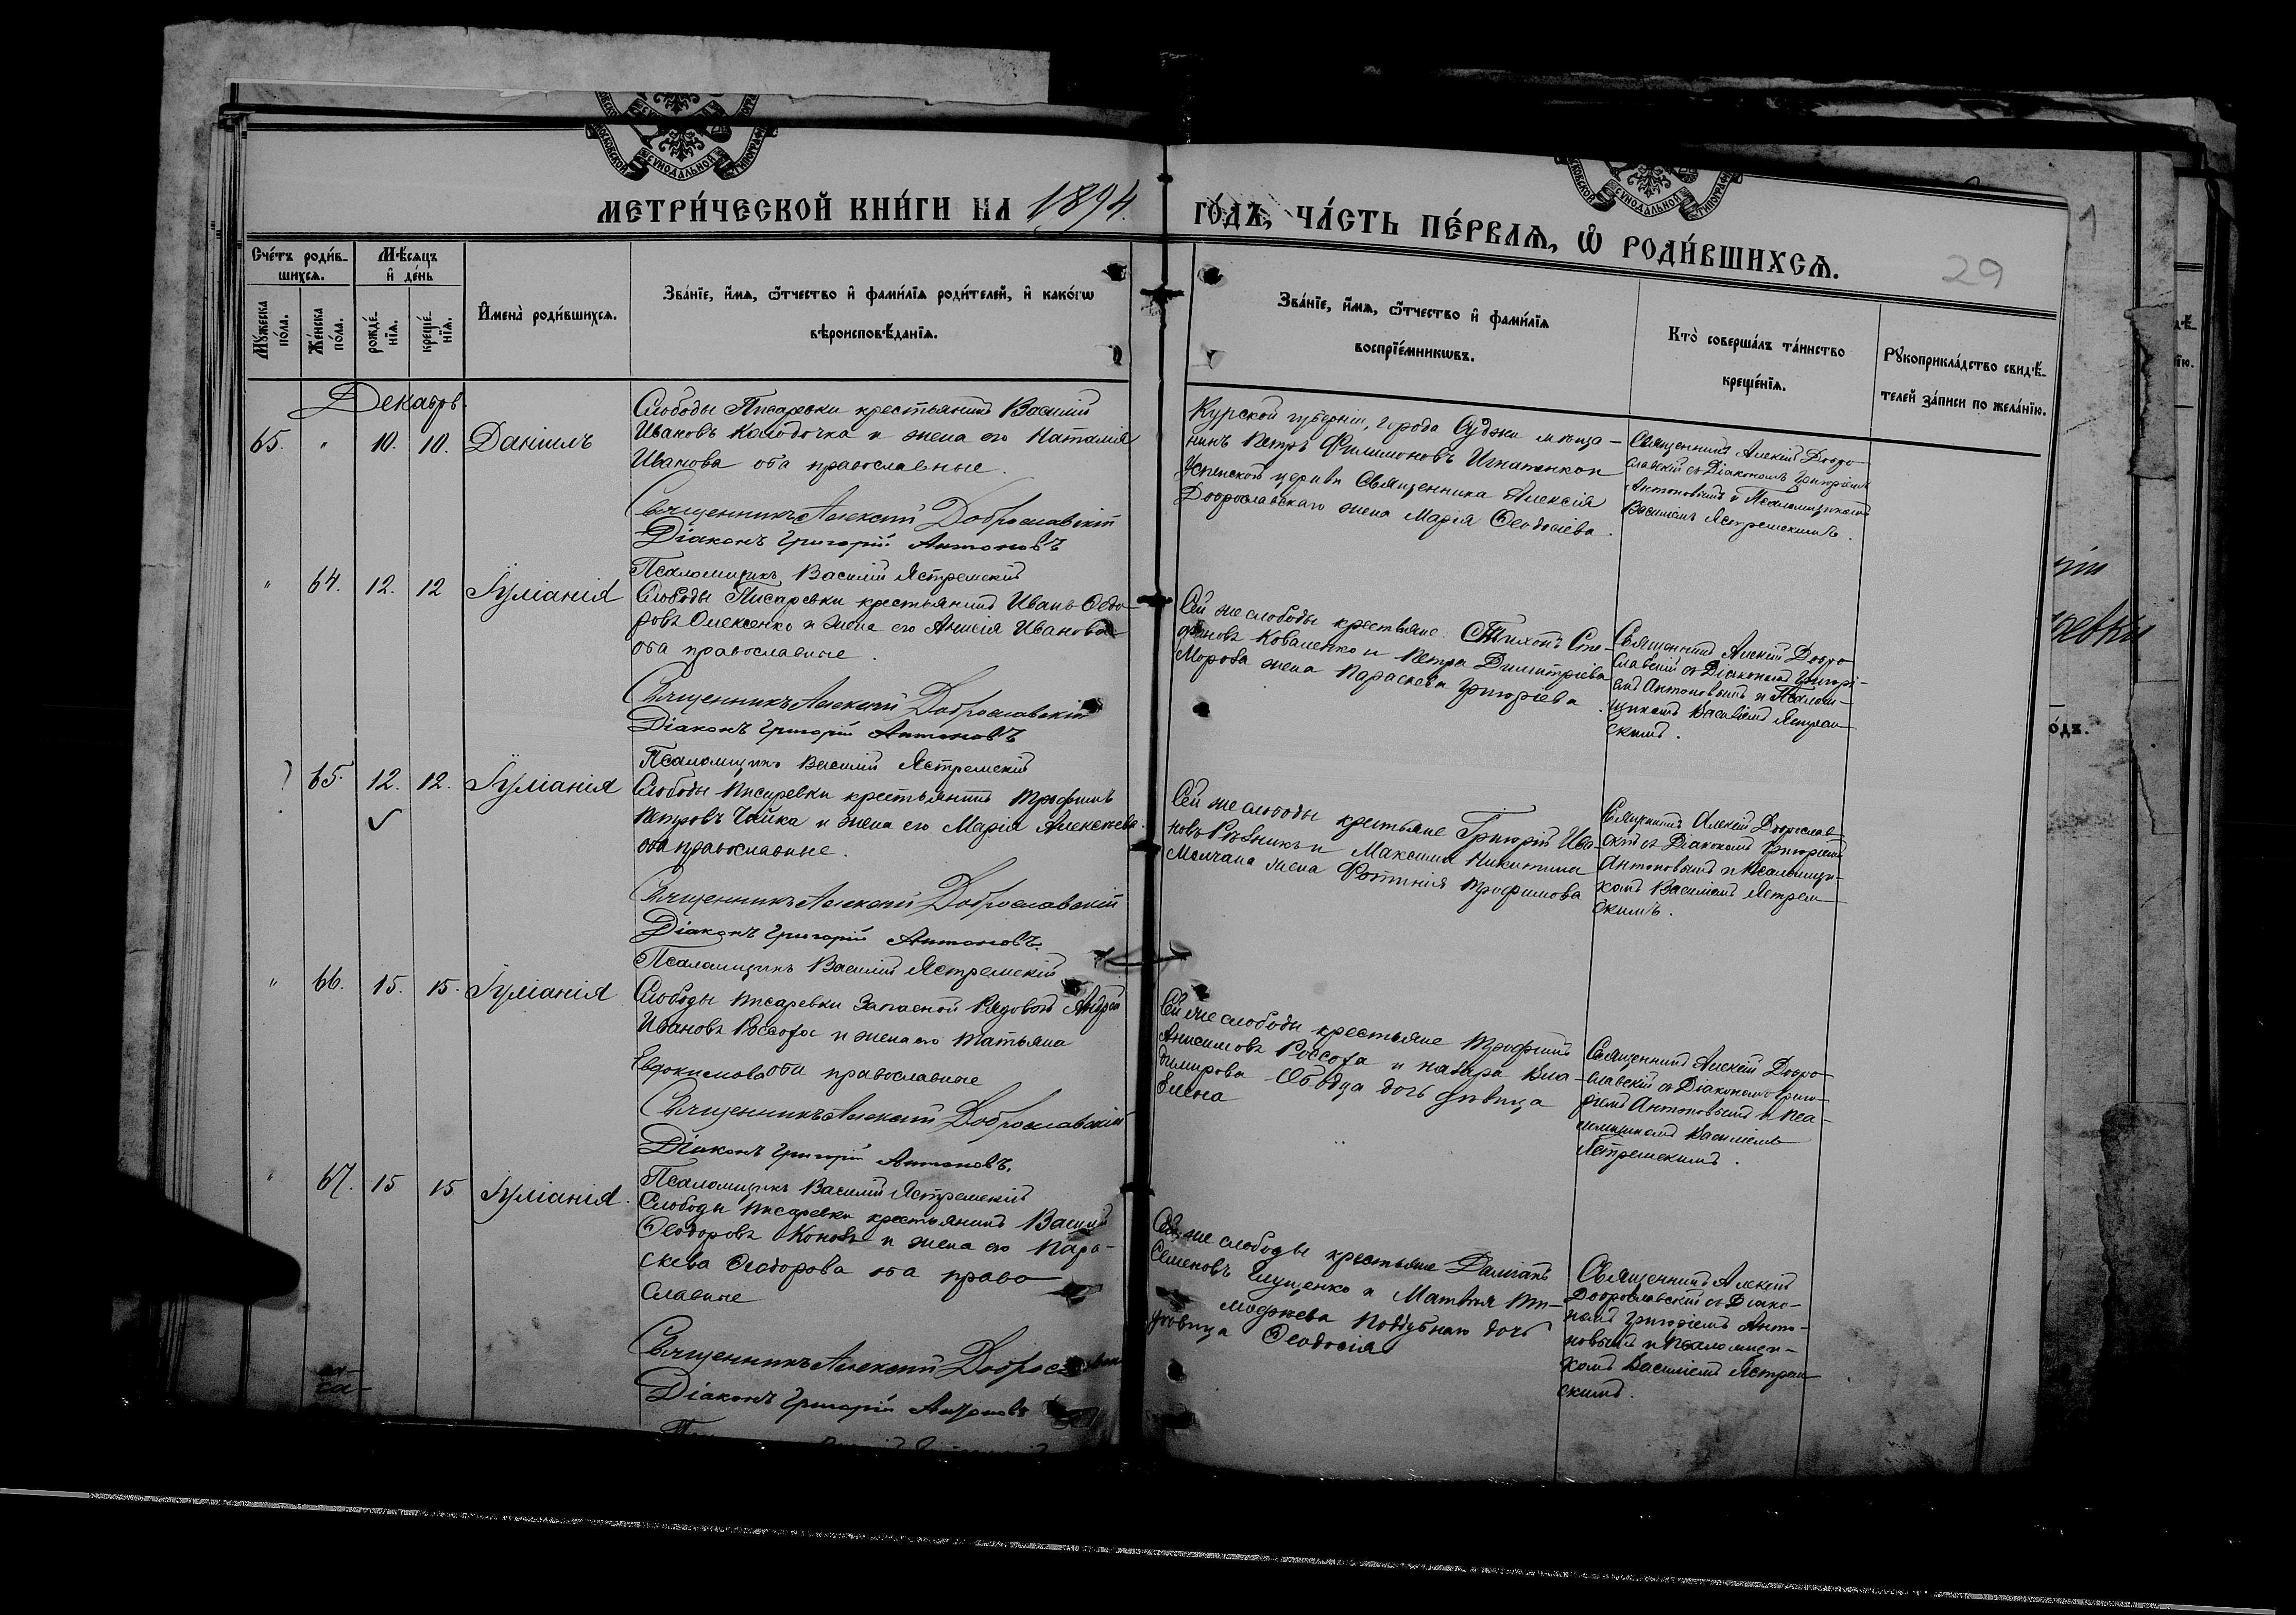 МЕТРИ́ЧЕСКОЙ КНИ́ГИ НА 1894. ГО́ДЪ, ЧА́СТЬ ПЕ́РВАѦ, Ѡ҆ РОДИ́ВШИХСѦ.
29
Сче́тъ роди́в-
шихсѧ.
Мѣ́сѧцъ
и҆ де́нь
Мꙋ́жеска
по́ла.
Же́нска
по́ла.
рожде́-
нїѧ.
креще́-
нїѧ.
И҆мена̀ роди́вшихсѧ.
Зва́нїе, и҆́мѧ, ѻ҆́тчество и҆ фами́лїѧ роди́телей, и҆ како́гѡ
вѣроисповѣ́данїѧ.
Зва́нїе, и҆́мѧ, ѻ҆́тчество и҆ фами́лїѧ
воспрїе́мникѡвъ.
Кто̀ соверша́лъ та́инство
креще́нїѧ.
Рꙋкоприкла́дство свидѣ́-
телей за́писи по жела́нїю.
Декабрь.
65. " 10. 10. Даніилъ
Слободы Писаревки крестьянинъ Василій
Ивановъ Колодочка и жена его Наталія
Иванова оба православные.
Священникъ Алексій Доброславскій
Діаконъ Григорій Антоновъ
Псаломщикъ Василій Ястремскій
Курской губерніи, города Суджи мѣща-
нинъ Петръ Филимоновъ Игнатенко и
Успенской церкви Священника Алексія
Доброславскаго жена Марія Ѳеодосіева.
Священникъ Алексій Добро-
славскій съ Діакономъ Григоріемъ
Антоновымъ и Псаломщикомъ
Василіемъ Ястремскимъ.
" 64. 12. 12 Іуліанія
Слободы Писаревки крестьянинъ Иванъ Ѳедо-
ровъ Олексенко и жена его Анисія Иванова
оба православные.
Священникъ Алексій Доброславскій
Діаконъ Григорій Антоновъ
Псаломщикъ Василій Ястремскій
Сей же слободы крестьяне: Тихонъ Сте-
фановъ Коваленко и Петра Димитріева
Мороза жена Параскева Григоріева.
Священникъ Алексій Добро-
славскій съ Діакономъ Григорі-
емъ Антоновымъ и Псалом-
щикомъ Василіемъ Ястрем-
скимъ.
65. 12. 12. Іуліанія
Слободы Писаревки крестьянинъ Трофимъ
Петровъ Чайка и жена его Марія Алексѣева
оба православные.
Священникъ Алексій Доброславскій
Діаконъ Григорій Антоновъ.
Псаломщикъ Василій Ястремскій
Сей же слободы крестьяне Григорій Ива-
новъ Рѣзникъ и Максима Никитина
Молчана жена Фотинія Трофимова
Священникъ Алексій Доброслав-
скій съ Діакономъ Григоріемъ
Антоновымъ и Псаломщи-
комъ Василіемъ Ястрем-
скимъ.
" 66. 15. 15. Іуліанія
Слободы Писаревки Запасной Рядовой Андрей
Ивановъ Россоха и жена его Татьяна
Евдокимова оба православные
Священникъ Алексій Доброславскій
Діаконъ Григорій Антоновъ.
Псаломщикъ Василій Ястремскій
Сей же слободы крестьяне Трофимъ
Анисимовъ Россоха и Назара Вла-
димирова дочь дѣвица
Елена
Священникъ Алексій Добро-
славскій съ Діакономъ Григо-
ріемъ Антоновымъ и Пса-
ломщикомъ Василіемъ
Ястремскимъ.
" 67. 15 15 Іуліанія.
Слободы Писаревки крестьянинъ Василій
Ѳеодоровъ и жена его Пара-
скева Ѳеодорова оба право-
славные
Священникъ Алексій
Діаконъ Григорій Антоновъ
Сей же слободы крестьяне Даміанъ
Семеновъ и Матвѣя Ти-
моѳеева Поддубнаго дочь
дѣвица Ѳеодосія
Священникъ Алексій
Доброславскій съ Діако-
номъ Григоріемъ Анто-
новымъ и Псаломщи-
комъ Василіемъ Ястрем-
скимъ.